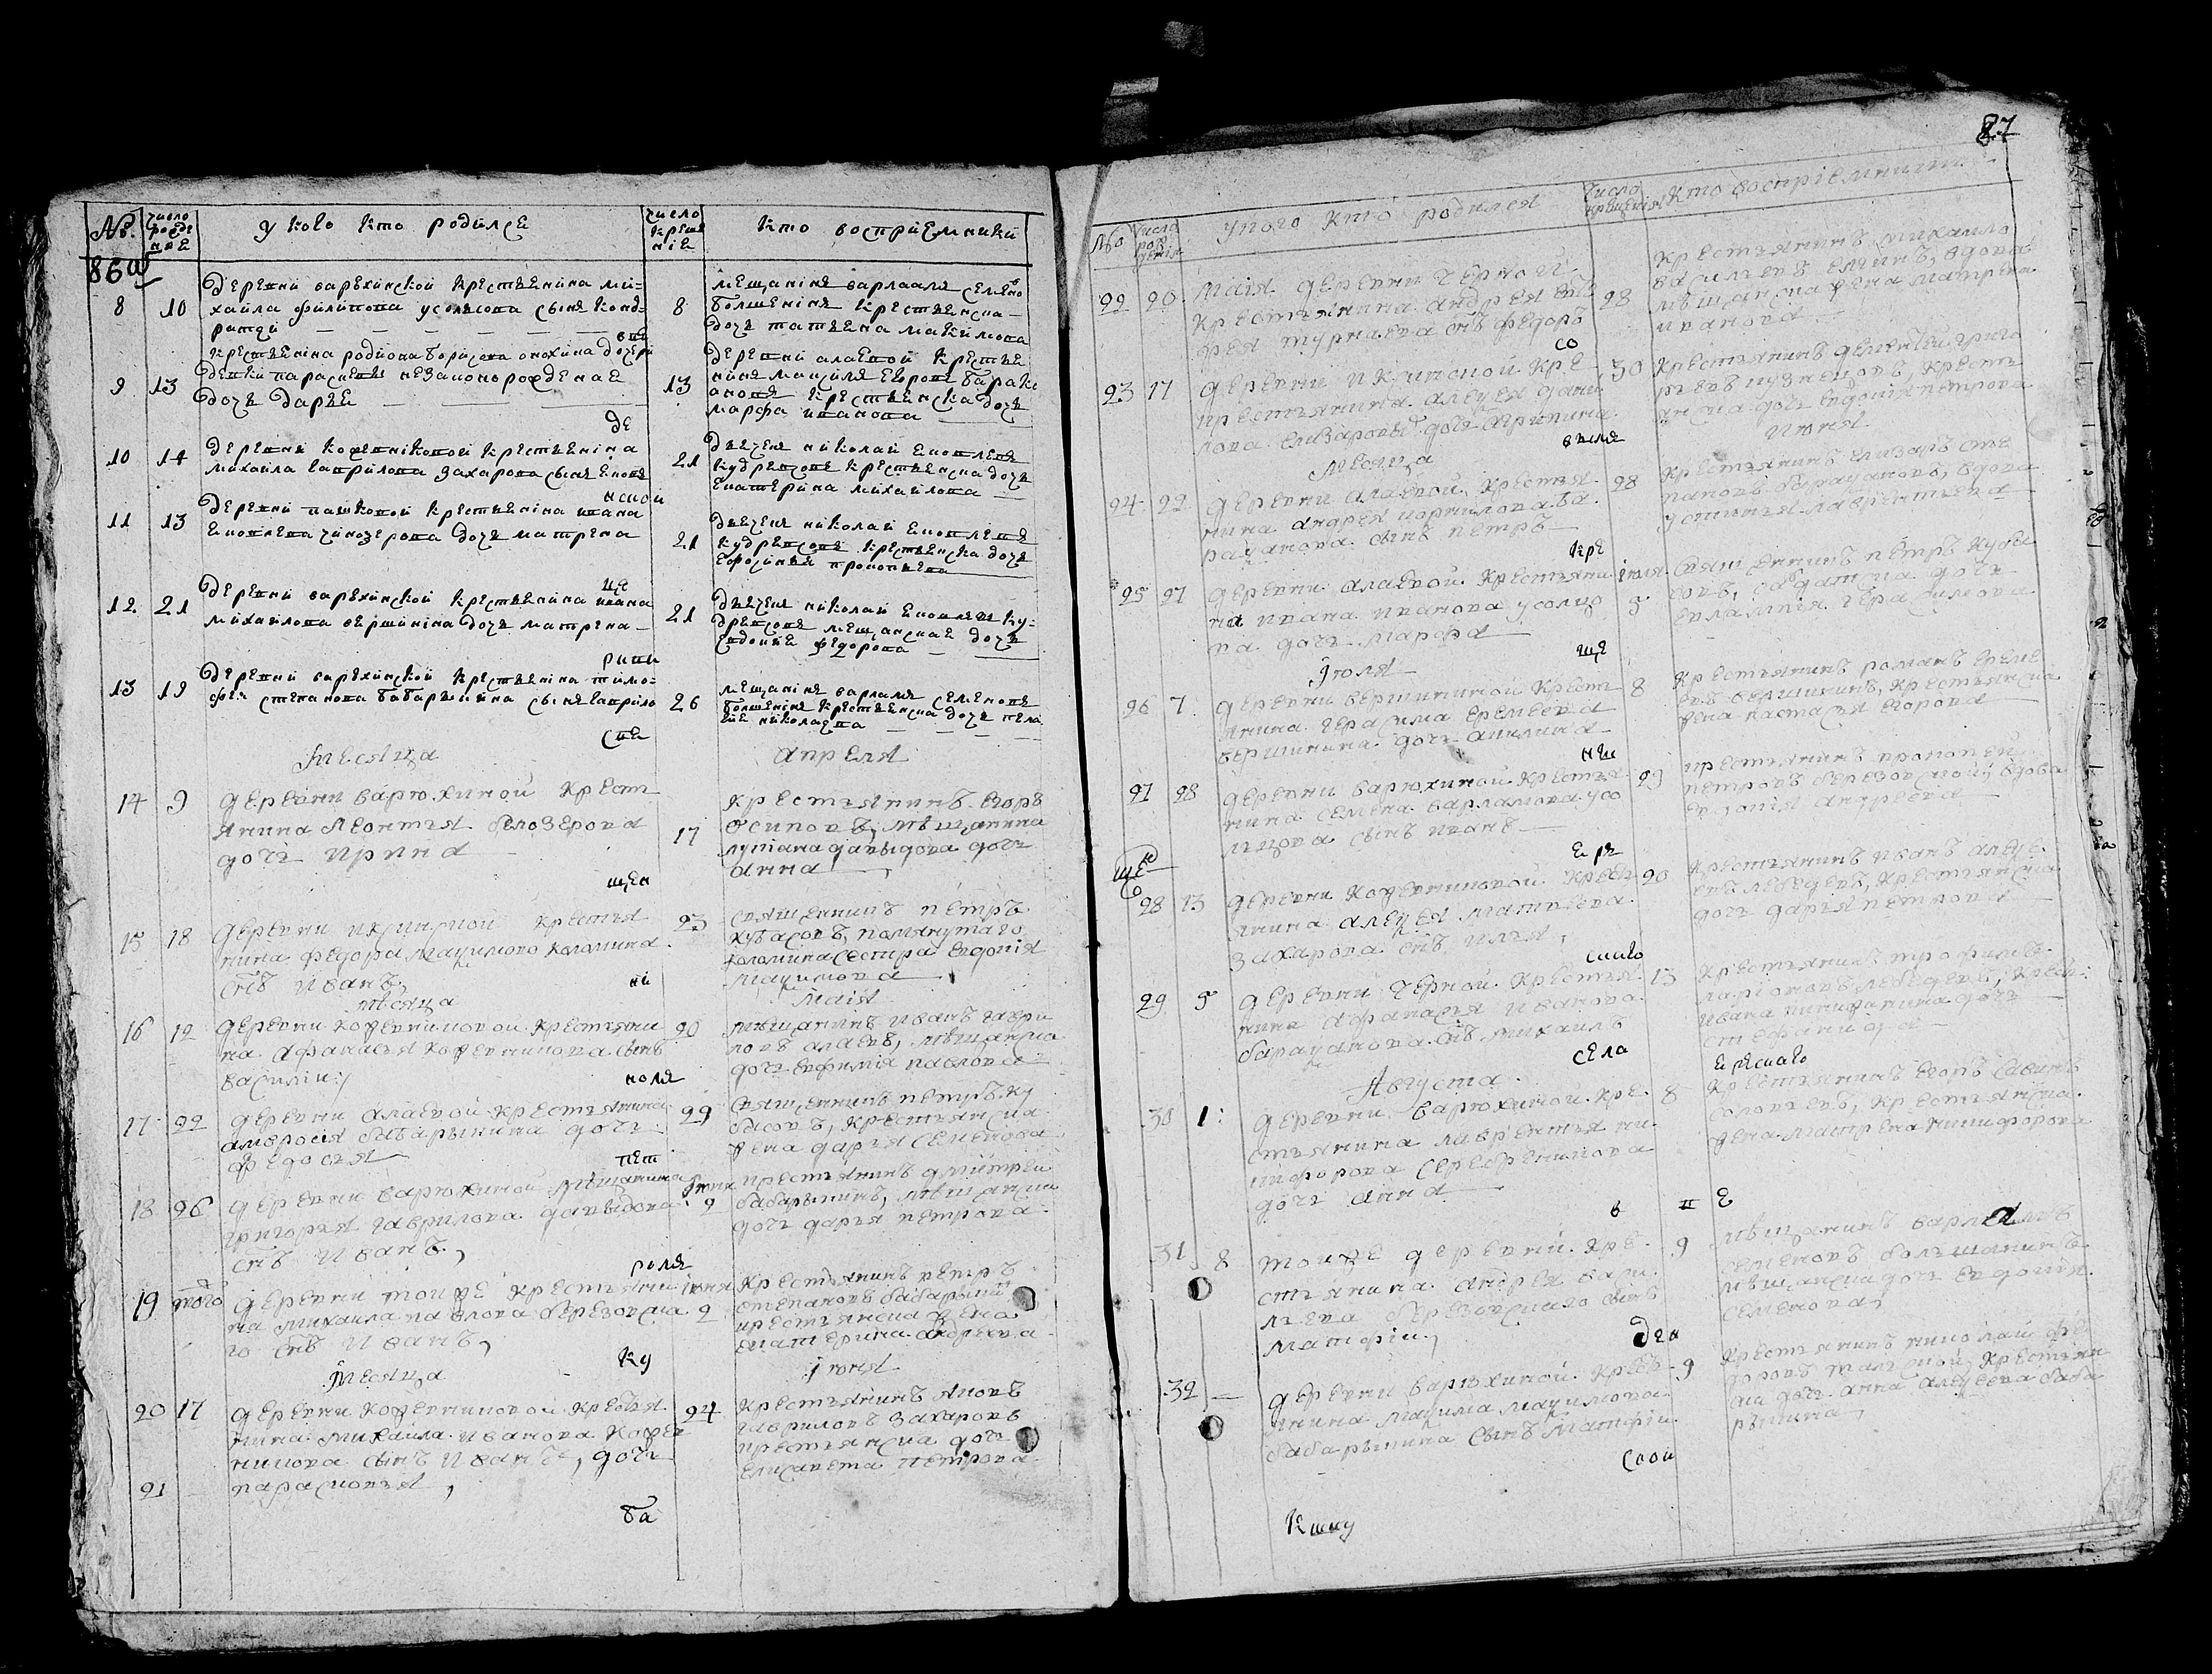 №
число рожде ния
у ково кто родился
число креще ния
кто восприемники
86 об
8 10
деревни варюхинской крестьянина ми-
хайла филипова усольцова сынъ конд-
ратей
8
мещанинъ варлаамъ семено
большенинъ крестьянска-
дочь татьяна макимова
вш
9 13
крестьянина родиона борисова анохина дочери
девки парасковьи незаконорожденая
дочь дарья
13
деревни алаевой крестья
нинъ
крестьянска дочь
марфа иванова
де
10 14
деревни кожевниковой крестьянина
михаила гаврилова захарова сынъ яковъ
21
дьячекъ николай яковлевъ
кудревцовъ крестьянска дочь
екатерина михайлова
нской
11 13
деревни пашковой крестьянина ивана
яковлева чинозерова дочь матрена
21
дьячекъ николай яковлевъ
кудревцовъ крестьянска дочь
ефросинья прокопьева
ще
12 21
деревни варюхинской крестьянина ивана
михайлова вершинина дочь матрена
21
дьячекъ николай яковлевъ ку-
древцовъ мещанская дочь
евдокия федорова
13 19
деревни варюхинской крестьянина тимо-
фея степанова бабарыкина сынъ гаврило
26
мещанинъ варламъ семеновъ
большенинъ крестьянска дочь пела
гея николаева
све
месяца
апреля
14 9
деревни варюхиной крест
янина леонтья белозерова
дочь ирина
17
крестьянинъ егоръ
осиповъ, мещанина
лукиана давыдова дочь
анна
щен
15 18
деревни икринской крестья
нина федора макимова коломина
сынъ иванъ,
23
священникъ петръ
кубасовъ, помянутаго
коломина сестра евдокия
макимова
ни
месяца
маия
16 12
деревни кожевниковой крестьяни
на афанасья кожевникова сынъ
василии
20
мещанинъ иванъ гаври
ловъ алаевъ, мещанска
дочь евфимия павлова
коля
17 22
деревни алаевой крестьянина
амвросия бабарыкина дочь
федосья
29
священникъ петръ ку
басовъ, крестьянска
жена дарья семенова
пет
18 26
деревни варюхиной мещанина
григорья гаврилова давыдова
сынъ иванъ,
июня 2
крестьянинъ дмитреи
бабарыкинъ, мещанска
дочь дарья петрова
роля
19 того
деревни тойже крестьяни
на михаила павлова березовска
го сынъ иванъ,
июня 2
крестьянинъ петръ
степановъ бабарыкинъ
крестьянска жена
екатерина андреева
ку
месяца
июня
20 17
деревни кожевниковой крестья
нина михаила иванова кожев
никова сынъ иванъ, дочь
21
парасковья,
24
крестьянинъ яковъ
гавриловъ захаровъ
крестьянска дочь
елисавета петрова
ба
87
№
число рождения
у кого кто родился
число крещения
кто восприемники
22 20
маия деревни черной
крестьянина андрея
сынъ федоръ
28
крестьянинъ михаило
васильевъ елгинъ, вдова
мещанска жена матрена
иванова
со
23 17
деревни икринской кре
крестьянина алексея дани
лова елизарова дочь ирина
30
крестьянинъ дементеи григо
рьевъ кузнецовъ, крест
янска дочь евдокия петрова
месяца
июня
24 22
деревни алаевой крестья
нина андрея корнилова ба
раканова сынъ петръ
28
крестьянинъ елизаръ сте
пановъ баракановъ, вдова
устинья лаврентьева
кре
25 27
деревни алаевой крестьяни
на ивана иванова усолцо
ва дочь марфа
июля 5
священникъ петръ куба
совъ, салдатска дочь
евлампия герасимова
ще
июля
26 7
деревни вершининой крест
янина герасима еремеева
вершинина дочь акилина
8
крестьянинъ романъ ереме
евъ вершининъ, крестьянска
жена настасья егорова
нш
27 28
деревни варюхиной крестья
нина семена варламова усо
лцова сынъ иванъ
29
крестьянинъ прокопеи
петровъ березовской, вдова
евдокия андреева
28 13
деревни кожевниковой крест
янина алексея матвеева
захарова сынъ илья,
20
крестьянинъ иванъ алексе
евъ лебедевъ, крестьянска
дочь дарья петрова
скаго
29 5
деревни черной крестья
нина афанасья иванова
бараканова сынъ михаилъ
13
крестьянинъ трофимъ
ларионовъ лебедевъ, крест
ивана никифанина дочь
стефанида
села
августа
30 1:
деревни варюхиной кре
стьянина лаврентья ни
кифорова серебреникова
дочь анна
8
крестьянинъ егоръ савинъ
соловьевъ, крестьянска
жена матрена никифорова
в и е
31 8
тойже деревни кре
стьянина андрея васи
льева березовскаго сынъ
матфеи,
9
мещанинъ варлаамъ
семеновъ большанинъ
мещанска дочь евдокия
семенова,
32 —
деревни варюхиной крест
янина макима макимова
бабарыкина сынъ матфеи
9
крестьянинъ николай фе
доровъ крестьян
ска дочь анна алексеева баба
рыкина,
свои
книгу